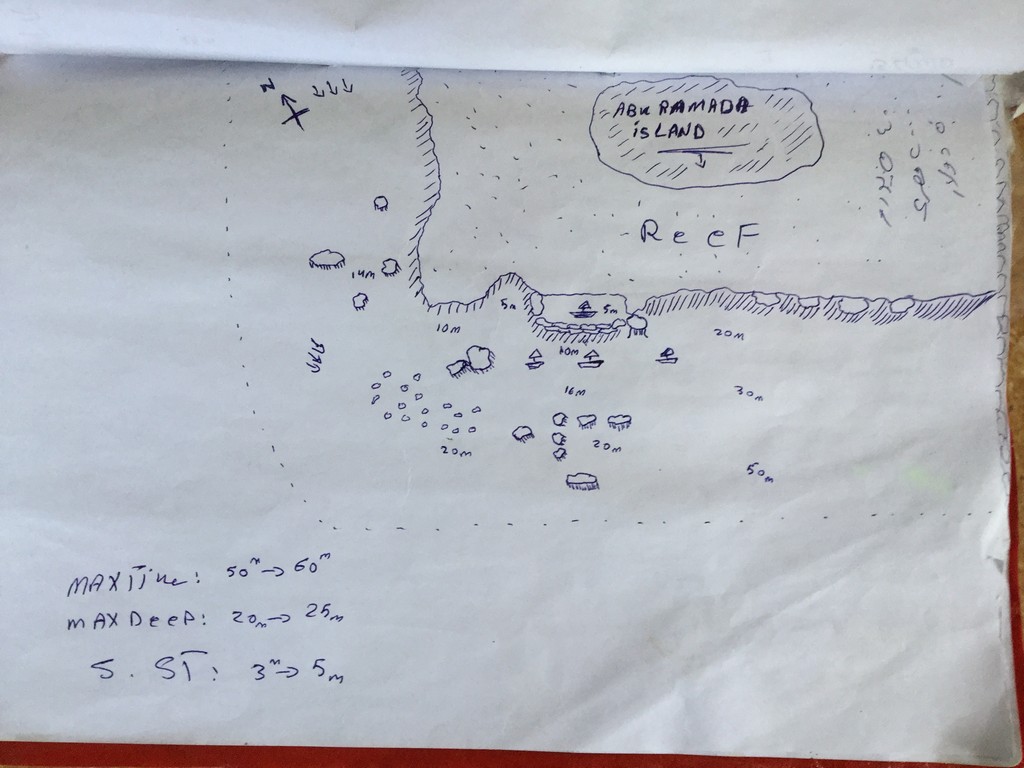 N
ABU RAMADA
ISLAND
ReeF
14m
10m
5m
5m
20m
10m
16m
30m
20m
20m
50m
MAXTJMe: 50m → 60m
MAX DeeP: 20m → 25m
S. ST: 3m → 5m